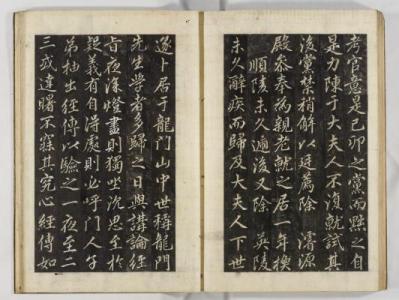 考官意是己卯之黨而黜之自
是力陳于大夫人不復就試其
後黨禁稍解以廷薦除 濬源
殿參奉為親老就之居二年換
順陵未久遞後又除 英陵
未久辭疾而歸及大夫人下世
遂卜居于龍門山中世稱龍門
先生學者多歸之日與講論經
旨夜深燈盡則獨坐沉思至於
疑義有自得處則必呼門人子
弟抽出經傳以驗之一夜至二
三或達曙不寐其究心經傳如